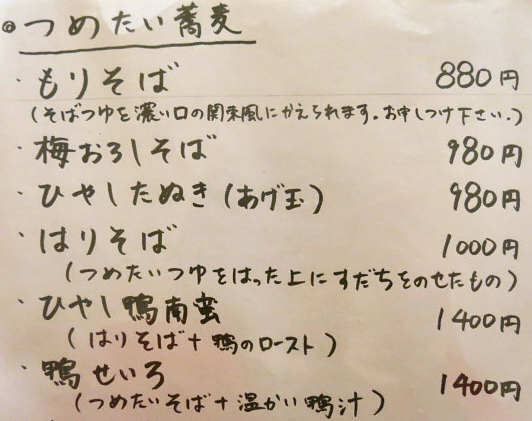 ◎つめたい蕎麦
・もりそば 880円
(そばつゆを濃い口の関東風にかえられます。お申しつけ下さい。)
・梅おろしそば 980円
・ひやしたぬき(あげ玉) 980円
・はりそば 1000円
(つめたいつゆをはった上にすだちをのせたもの)
・ひやし鴨南蛮 1400円
(はりそば+鴨のロースト)
・鴨せいろ 1400円
(つめたいそば+温かい鴨汁)